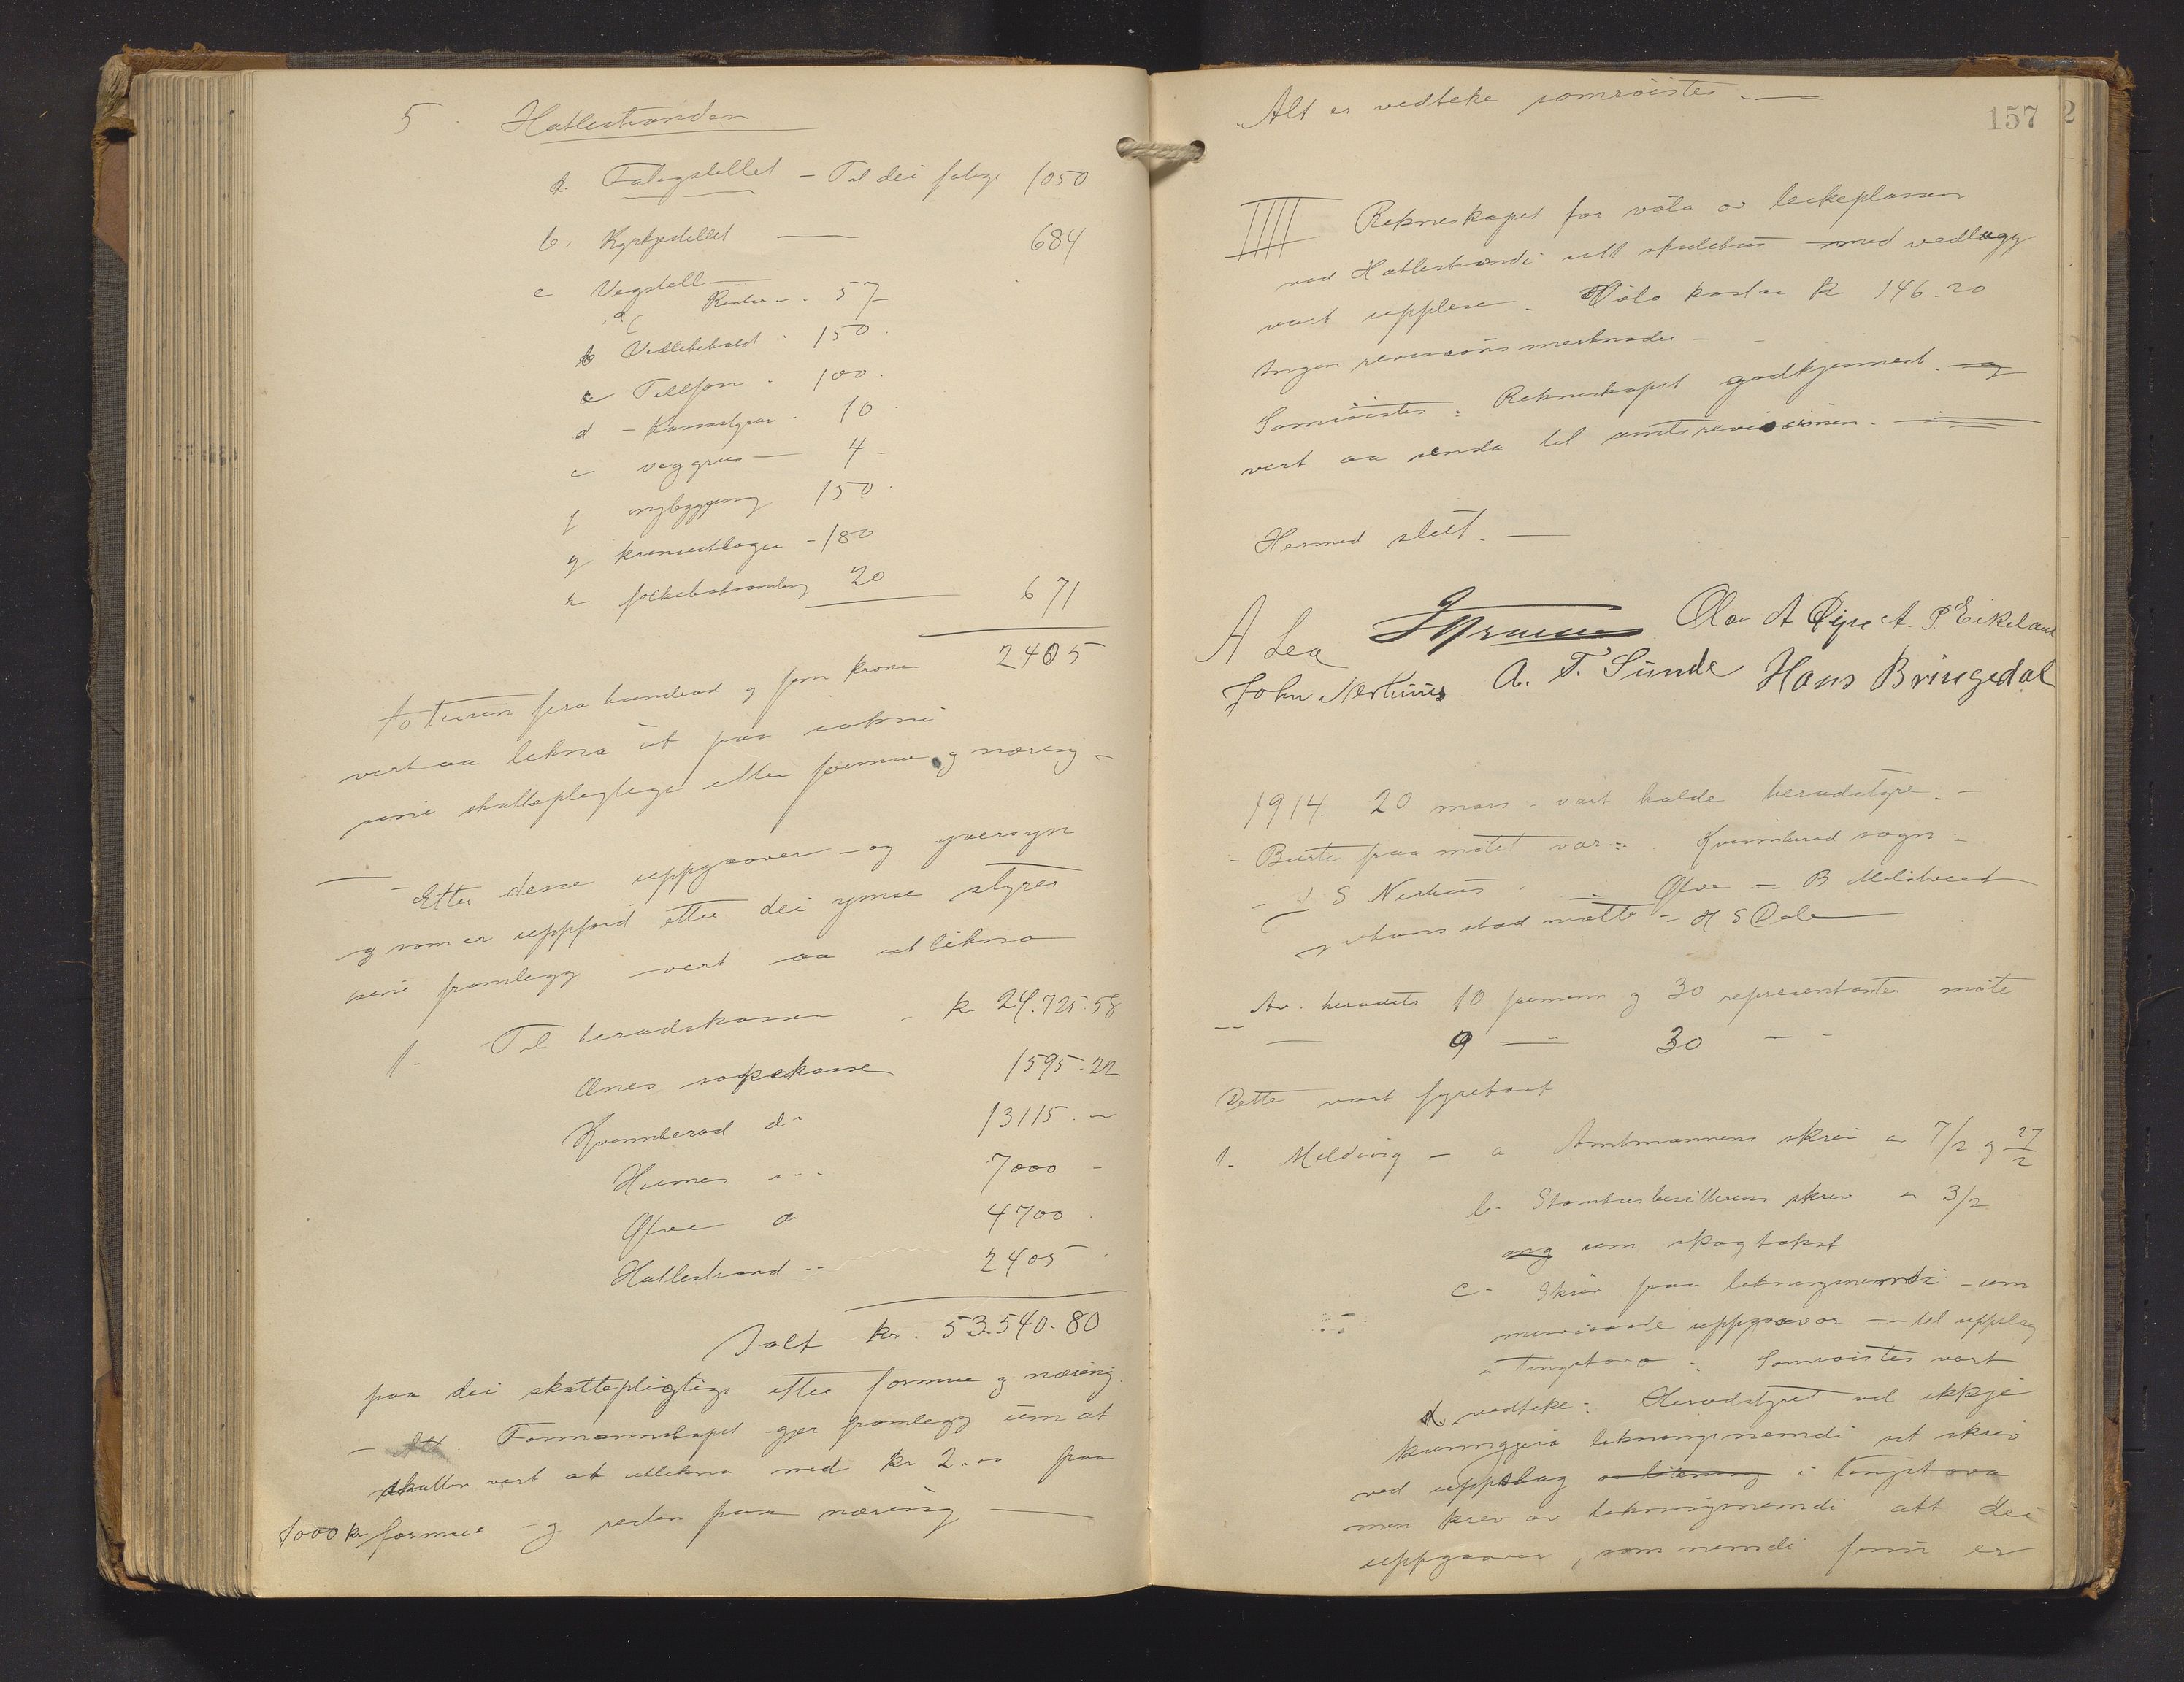 5. Hatlestranden
a. Fatigstellet - Til dei fatige 1050
b. Kyrkjestellet — 684
c Vegstell —
a Renter - 57 -
b Vedlikehald - 150 -
c Telefon - 100 -
d - Kassastyrar - 10 -
e veggrus — 4 -
f nybyggjing 150 -
g krunutlogur - 180
h folkeboksamling 20 671
2405
to tusen fira hundrad og fem kronor
vert aa likna ut paa sokni
sine skatteplegtige etter formue og næring -
- Etter desse uppgaaver - og yversyn
og som er uppførd etter dei ymse styrer
sine framlegg vert aa utlikna
1. Til heradskassen - kr 24.725.58
Ænes sognekasse 1595.22
Kvinnherad do 13115. -
Husnes do 7000 -
Ølve do 4700 -
Hatlestrand - 2405 -
Ialt kr. 53.540.80
paa dei skattepligtige etter formue og næring.
- Formannskapet gjer framlegg um at
skatten vert at utlikna med kr 2.00 paa
1000 kr formue - og resten paa næring —
Alt er vedteke samrøistes. —
157
2
IIII Rekneskapet for vøla av leikeplassen
ved Hatlestrandi sitt skulehus med vedlegg
vart upplese. Vøla kostar kr 146.20
Ingen revisions merknader -
Samrøistes: Rekneskapet godkjennest. og
vert aa senda til amtsrevisionen. —
Hermed slutt. —
A Lea Olav A Øyre A. P. Eikeland
John Nerhuus A. T. Sunde Hans Bringedal
1914. 20 mars - vart halde heradstyre. -
- Burte fraa møtet var: Kvinnherad sogn -
- J S Nerhus - Ølve - B Melstveit
og i hans stad møtte - H S Dale
Av heradets 10 formenn og 30 representanter møtte
— 9 — 30 - -
Dette vart fyretaat
1. Melding - a Amtmannens skriv av 7/2 og 27/2
b. Storthusbesitterens skriv av 3/2
ang um skogtakst
c - Skriv fraa likningsnemndi - um
uppgaavor - til uppslag
i tingstova. Samrøistes vart
d vedteke: Heradstyret vil ikkje
kunngjera likningsnemdi sit skriv
ved uppslag i tingstova
men krev av likningsnemdi att dei
uppgaaver, som nemdi er